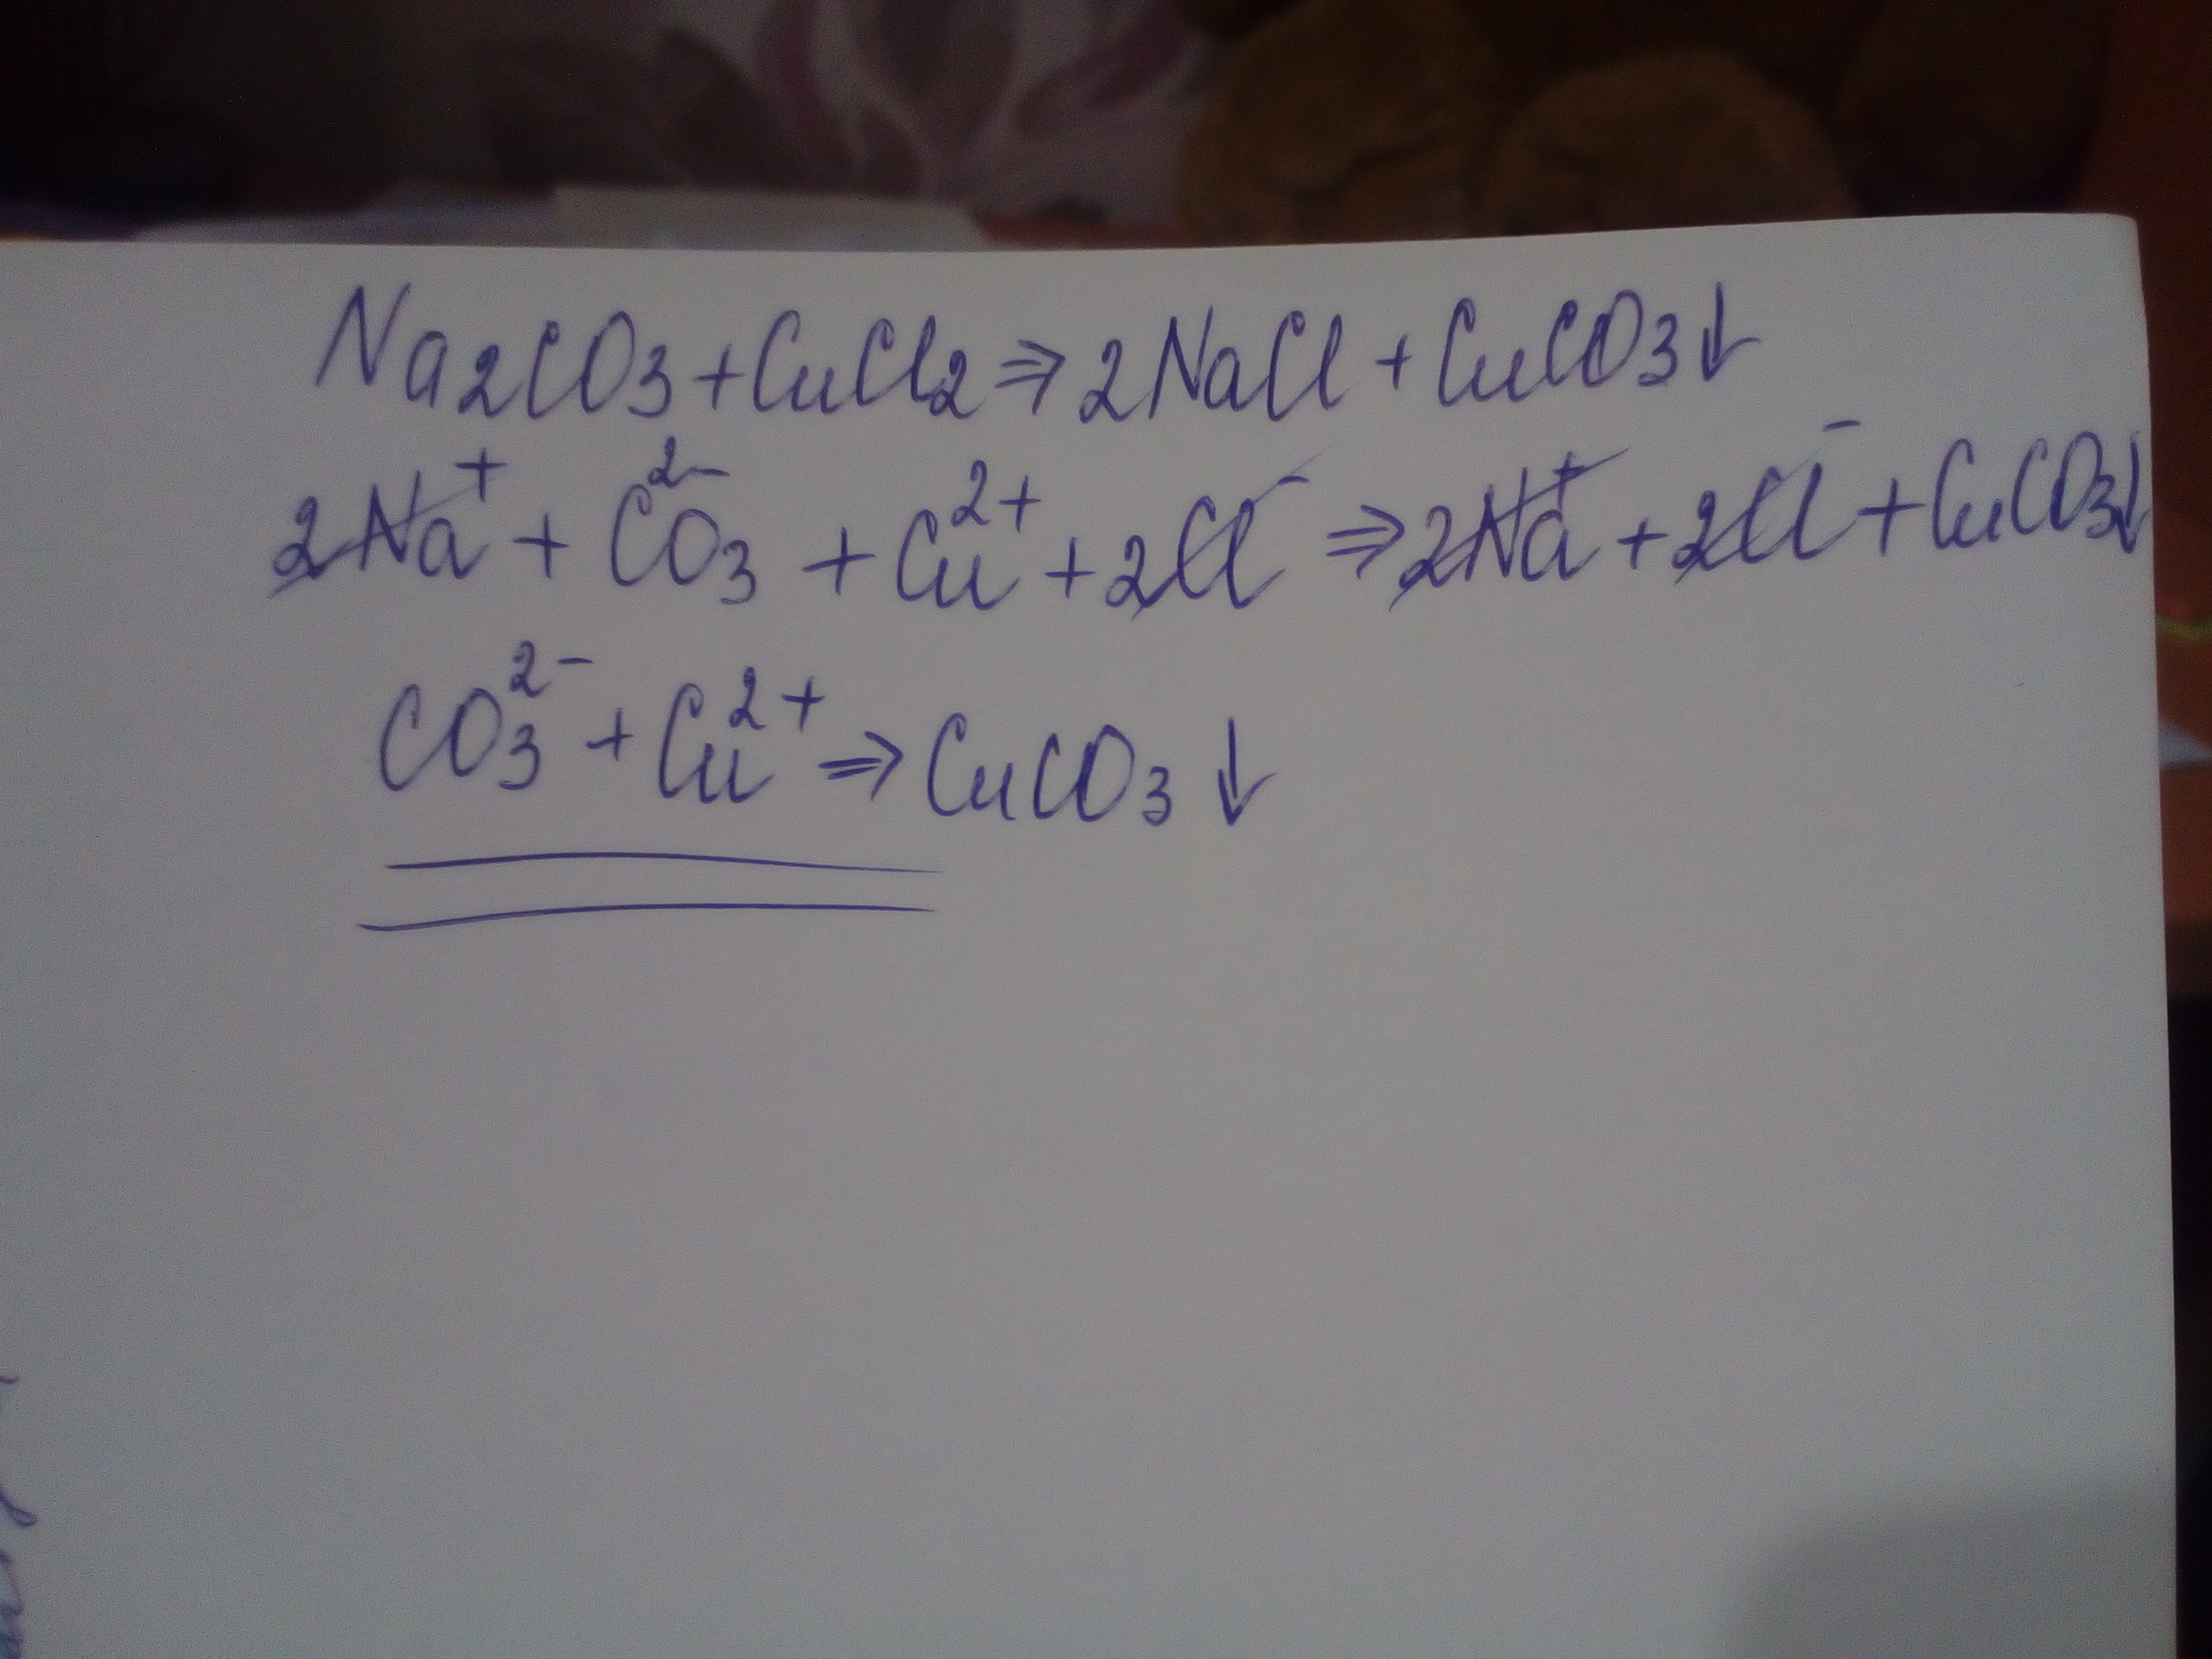 Na₂CO₃+CuCl₂⇒2NaCl+CuCO₃↓
2Na⁺+CO₃²⁻+Cu²⁺+2Cl⁻⇒2Na⁺+2Cl⁻+CuCO₃↓
CO₃²⁻+Cu²⁺⇒CuCO₃↓